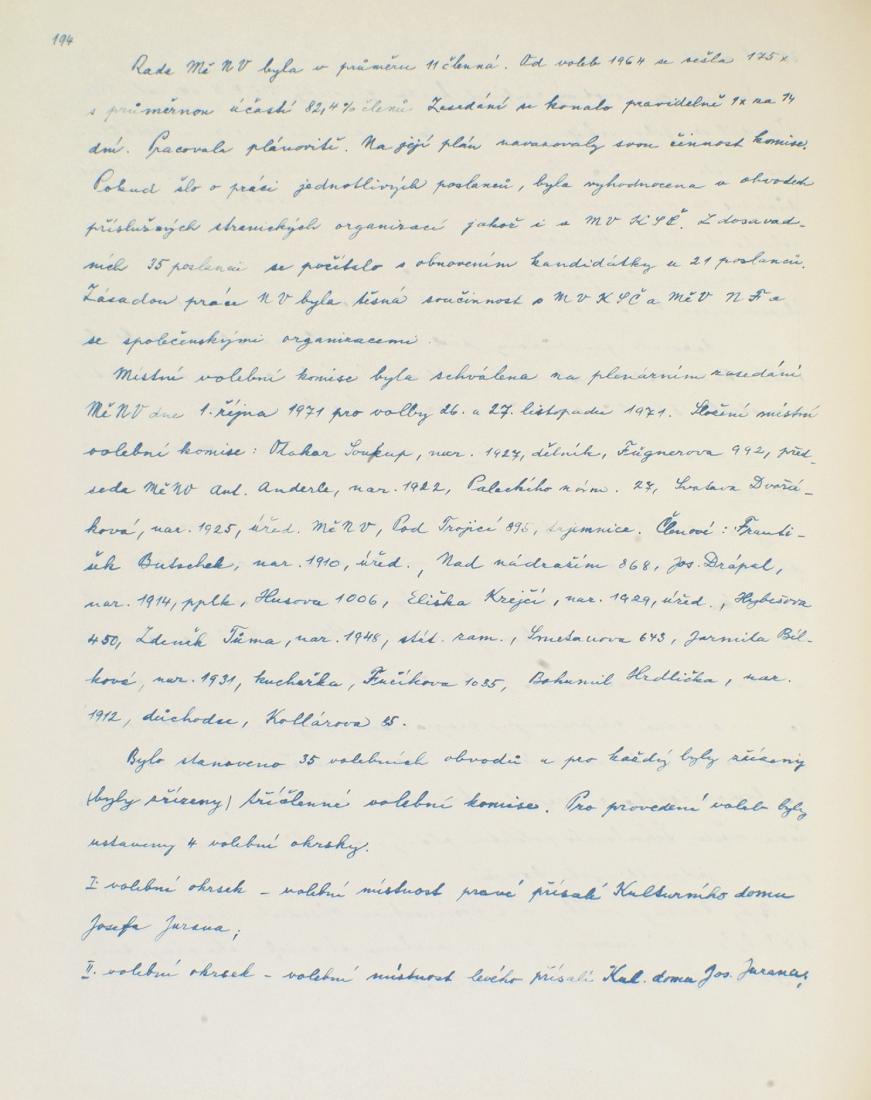 194
Rada MěNV byla v průměru 11 členná. Od voleb 1964 se sešla 175x
s průměrnou účastí 82,4% členů. Zasedání se konalo pravidelně 1x za 14
dní. Pracovala plánovitě. Na její plán navazovaly svou činnost komise.
Pokud šlo o práci jednotlivých poslanců, byla vyhodnocena v obvodech
příslušných stranických organizací jakož i v MV KSČ. Z dosavad-
ních 35 poslanců se počítalo s obnovením kandidátky u 21 poslanců.
Zásadou práce NV byla těsná součinnost s MV KSČ a MěV NF a
se společenskými organizacemi.
Místní volební komise byla schválena na plenárním zasedání
MěNV dne 1. října 1971 pro volby 26. a 27. listopadu 1971. Složení místní
volební komise: Otakar Soukup, nar. 1927, dělník, Fügnerova 992, před-
seda MěNV Ant. Anderle, nar. 1922, Palackého nám. 27, Svatava Dvořá-
ková, nar. 1925, úřed. MěNV, Pod Trojicí 895, tajemnice. Členové: Franti-
šek Butschek, nar. 1910, úřed., Nad nádražím 868, Jos. Drápal,
nar. 1914, pplk, Husova 1006, Eliška Krejčí, nar. 1929, úřed., Hybešova
450, Zdeněk Tůma, nar. 1948, stát. zam., Smetanova 643, Jarmila Bíl-
ková, nar. 1931, kuchařka, Fučíkova 1035, Bohumil Hrdlička, nar.
1912, důchodce, Kollárova 35.
Bylo stanoveno 35 volebních obvodů a pro každý byly zřízeny
(byly zřízeny) tříčlenné volební komise. Pro provedení voleb byly
ustaveny 4 volební okrsky.
I. volební okrsek – volební místnost pravé přísálí Kulturního domu
Josefa Jurana;
II. volební okrsek – volební místnost levého přísálí Kul. domu Jos. Jurana;